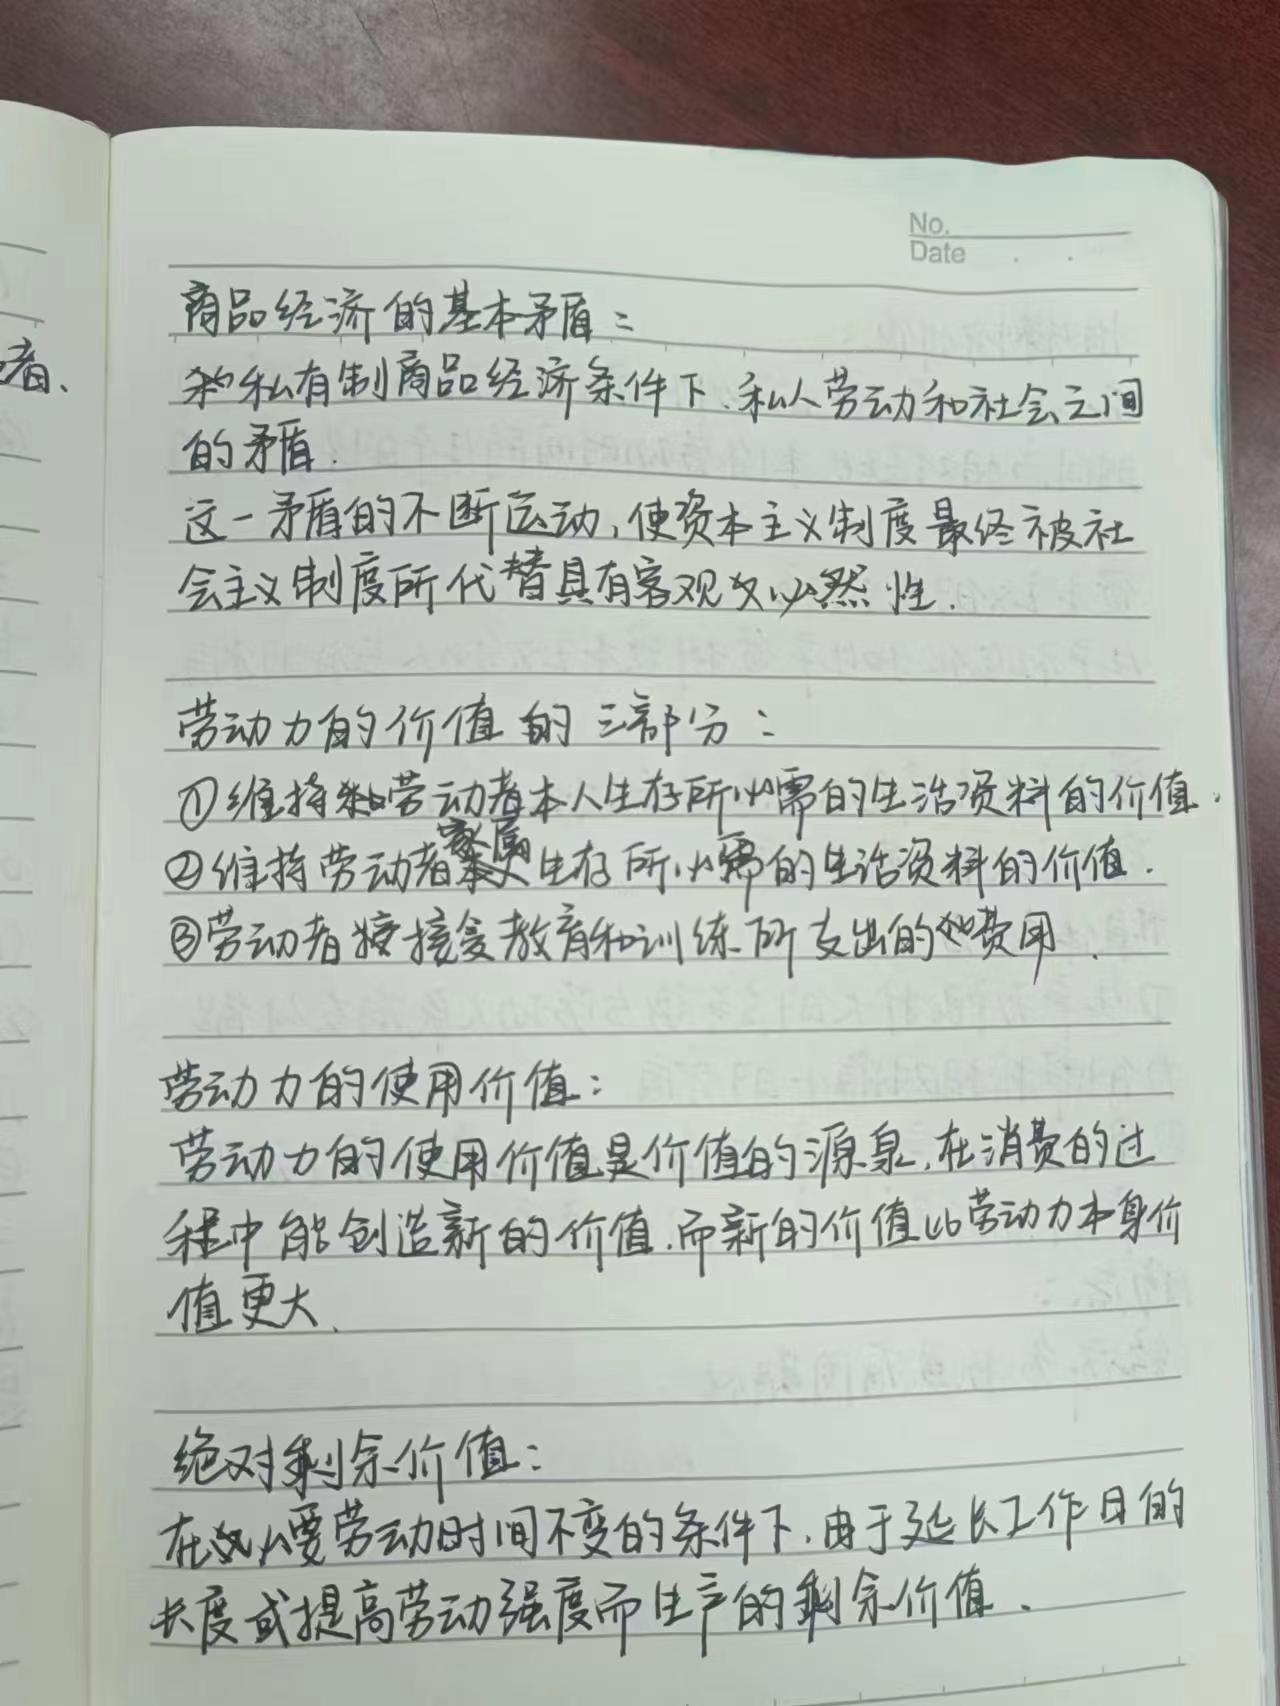 No.
Date
者、
商品经济的基本矛盾：
私有制商品经济条件下、私人劳动和社会之间
的矛盾.
这一矛盾的不断运动,使资本主义制度最终被社
会主义制度所代替具有客观必然性.
劳动力的价值的三部分：
①维持劳动者本人生存所必需的生活资料的价值.
②维持劳动者家属生存所必需的生活资料的价值.
③劳动者接受教育和训练所支出的费用.
劳动力的使用价值：
劳动力的使用价值是价值的源泉,在消费的过
程中能创造新的价值.而新的价值比劳动力本身价
值更大、
绝对剩余价值：
在必要劳动时间不变的条件下.由于延长工作日的
长度或提高劳动强度而生产的剩余价值.